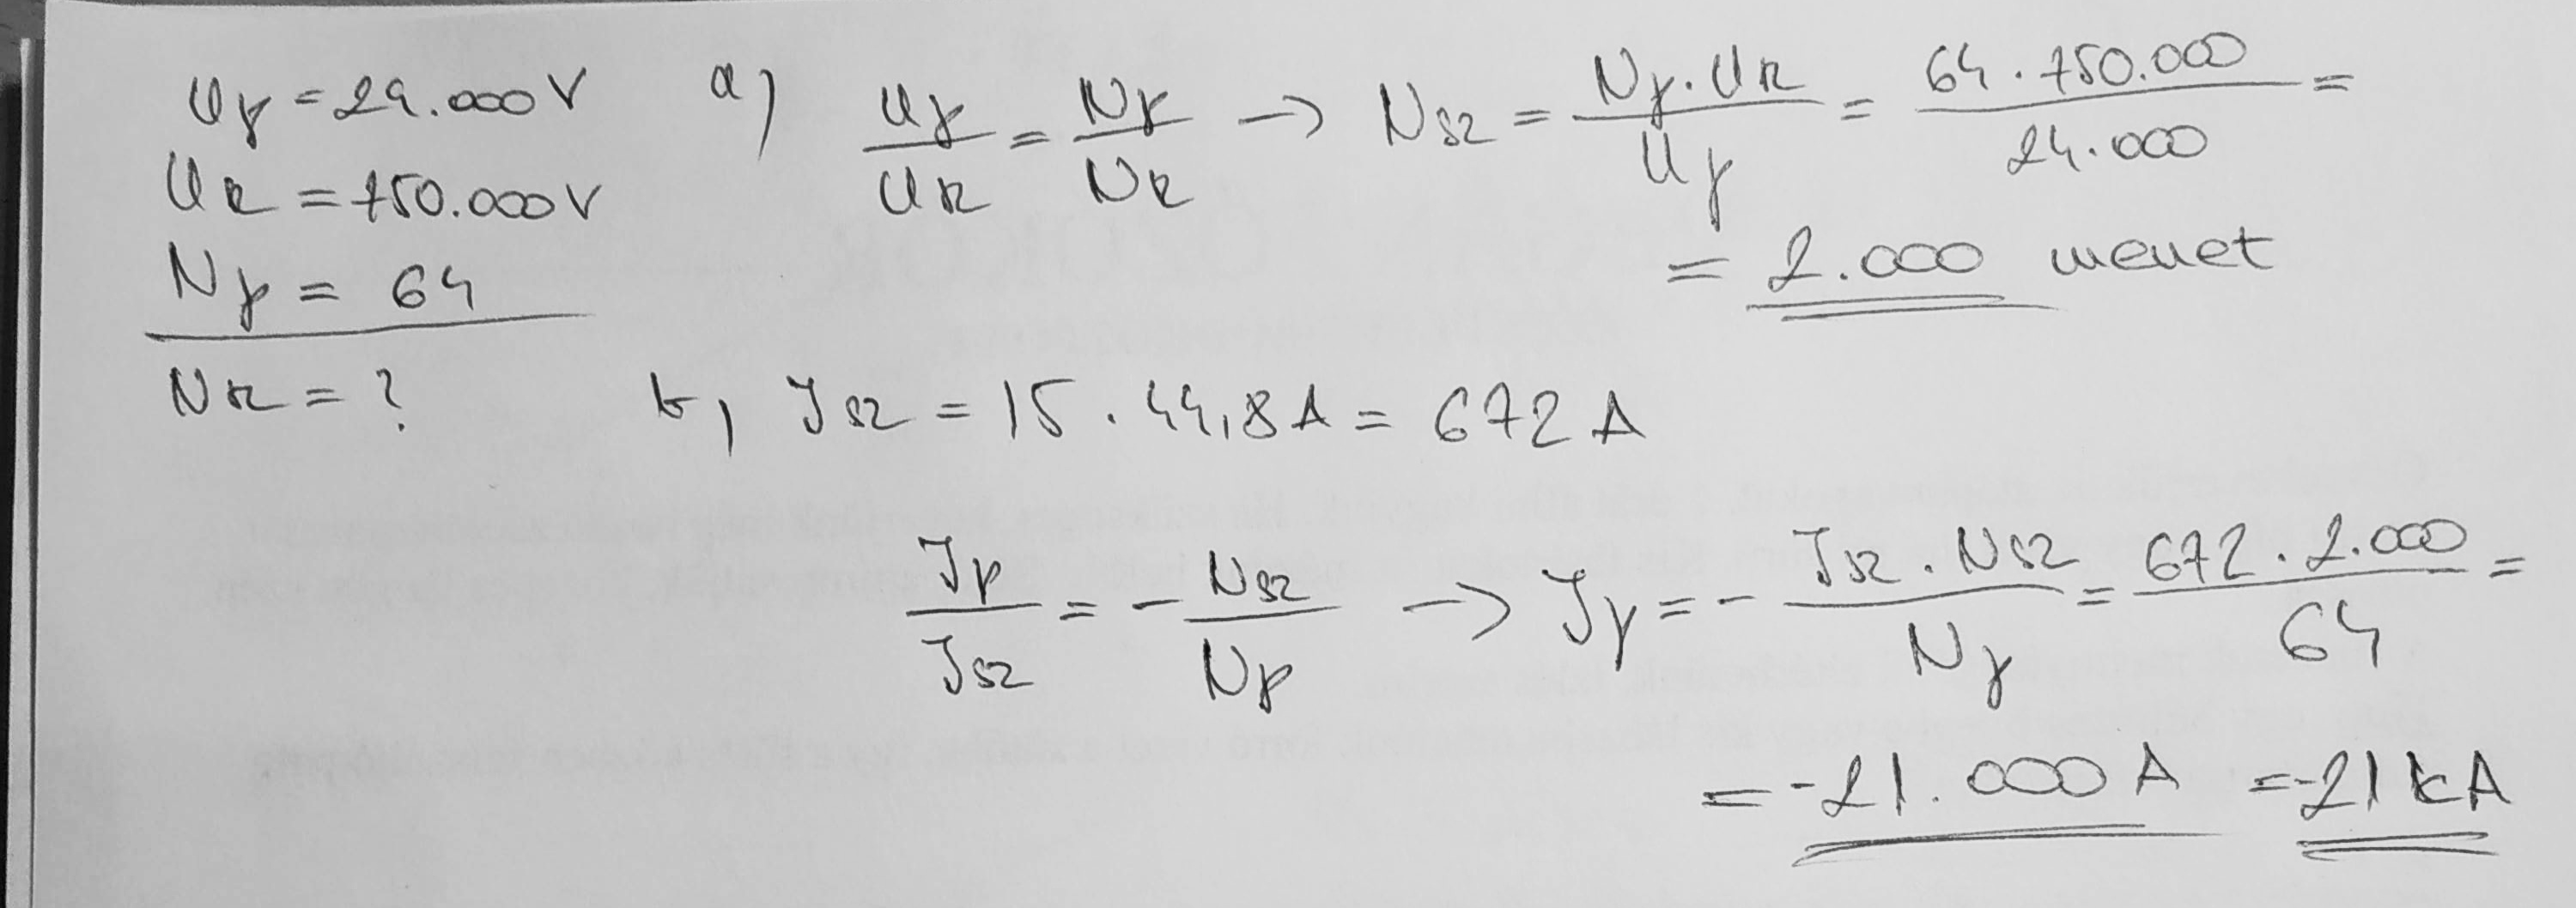 Up = 24.000 V
USZ = 750.000 V
Np = 64
NSZ = ?
a) Up/USZ = Np/NSZ → NSZ = Np·USZ/Up = 64·750.000/24.000 =
= 2.000 menet
b, ISZ = 15·44,8 A = 672 A
Ip/ISZ = -NSZ/Np → Ip = -ISZ·NSZ/Np = 672·2.000/64 =
= -21.000 A = -21 kA